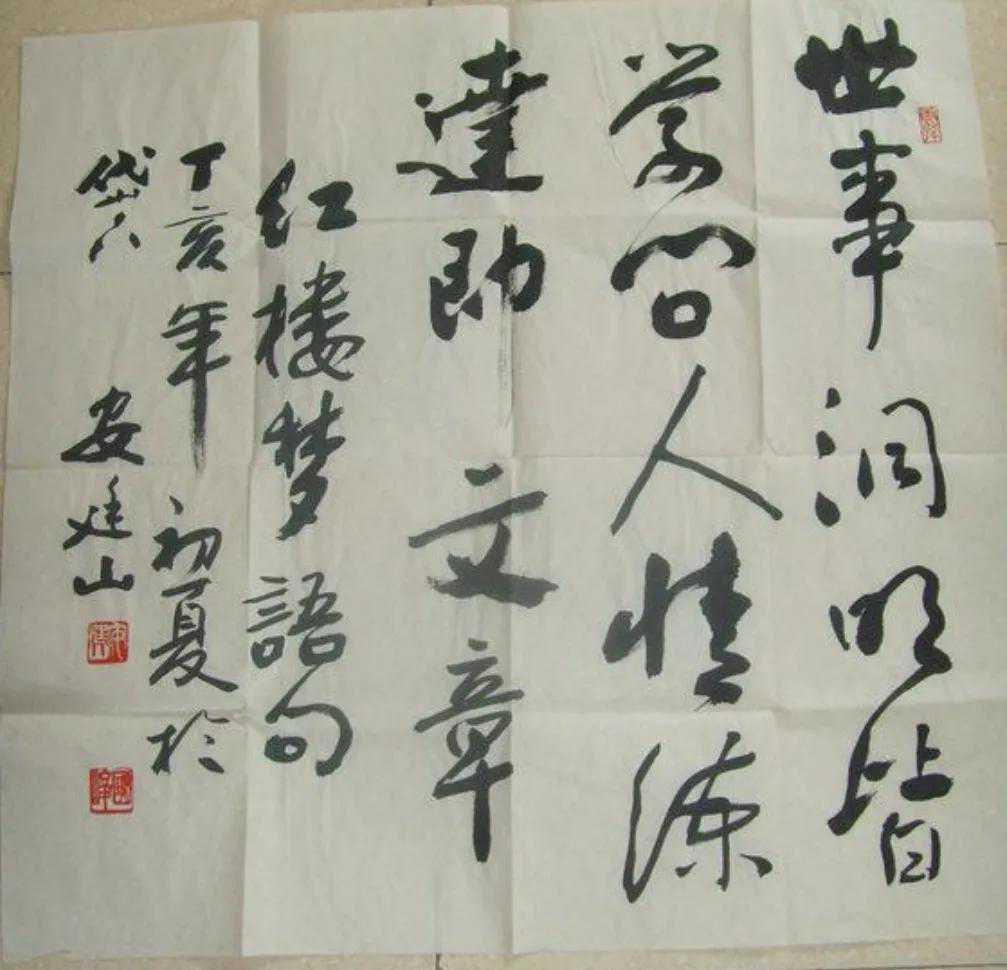 世事洞明皆
学问人情练
达即文章
红楼梦語句
丁亥年初夏於
岱下 安廷山